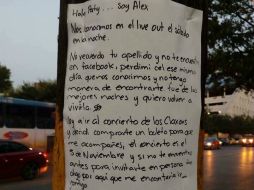 Hola Paty.... Soy Alex
Nos conocimos en el live out el sábado
en la noche.
No recuerdo tu apellido y no te encuentro
en facebook, perdimi cel ese mismo
día que nos conocimos y no tengo
manera de encontrarte fue de las
mejores noches y quiero volver a
vivirla
Voy a ir al concierto de los Claxons
y decidí comprarte un boleto para que
me acompañes, el concierto es el
8 Noviembre y si no te encuentro
antes para invitarte en persona te
dejo por aquí que me encantaría ir
contigo